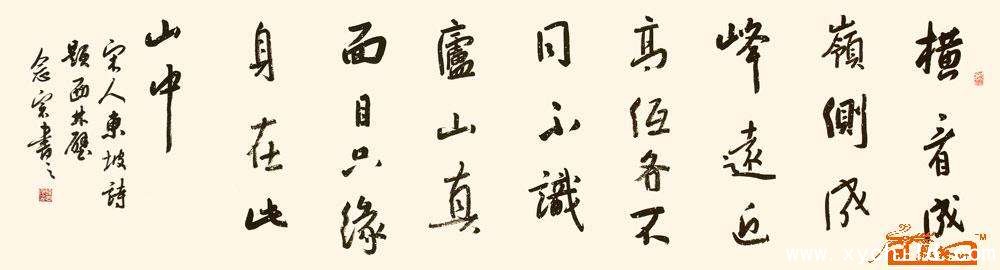 橫看成
嶺側成
峰遠近
高低各不
同不識
廬山真
面目只緣
身在此
山中
宋人東坡詩
題西林壁
念書之
TM